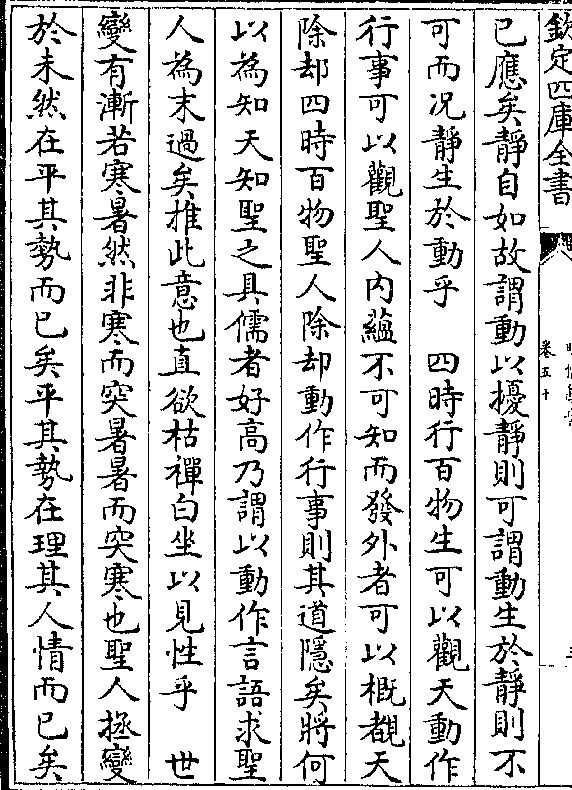 欽定四庫全書
卷五十
已應矣靜自如故謂動以擾靜則可謂動生於靜則不
可而况靜生於動乎　四時行百物生可以觀天動作
行事可以觀聖人内蘊不可知而發外者可以概覩天
除却四時百物聖人除却動作行事則其道隠矣將何
以為知天知聖之具儒者好高乃謂以動作言語求聖
人為末過矣推此意也直欲枯禪白坐以見性乎　世
變有漸若寒暑然非寒而突暑暑而突寒也聖人拯變
於未然在平其勢而已矣平其勢在理其人情而已矣